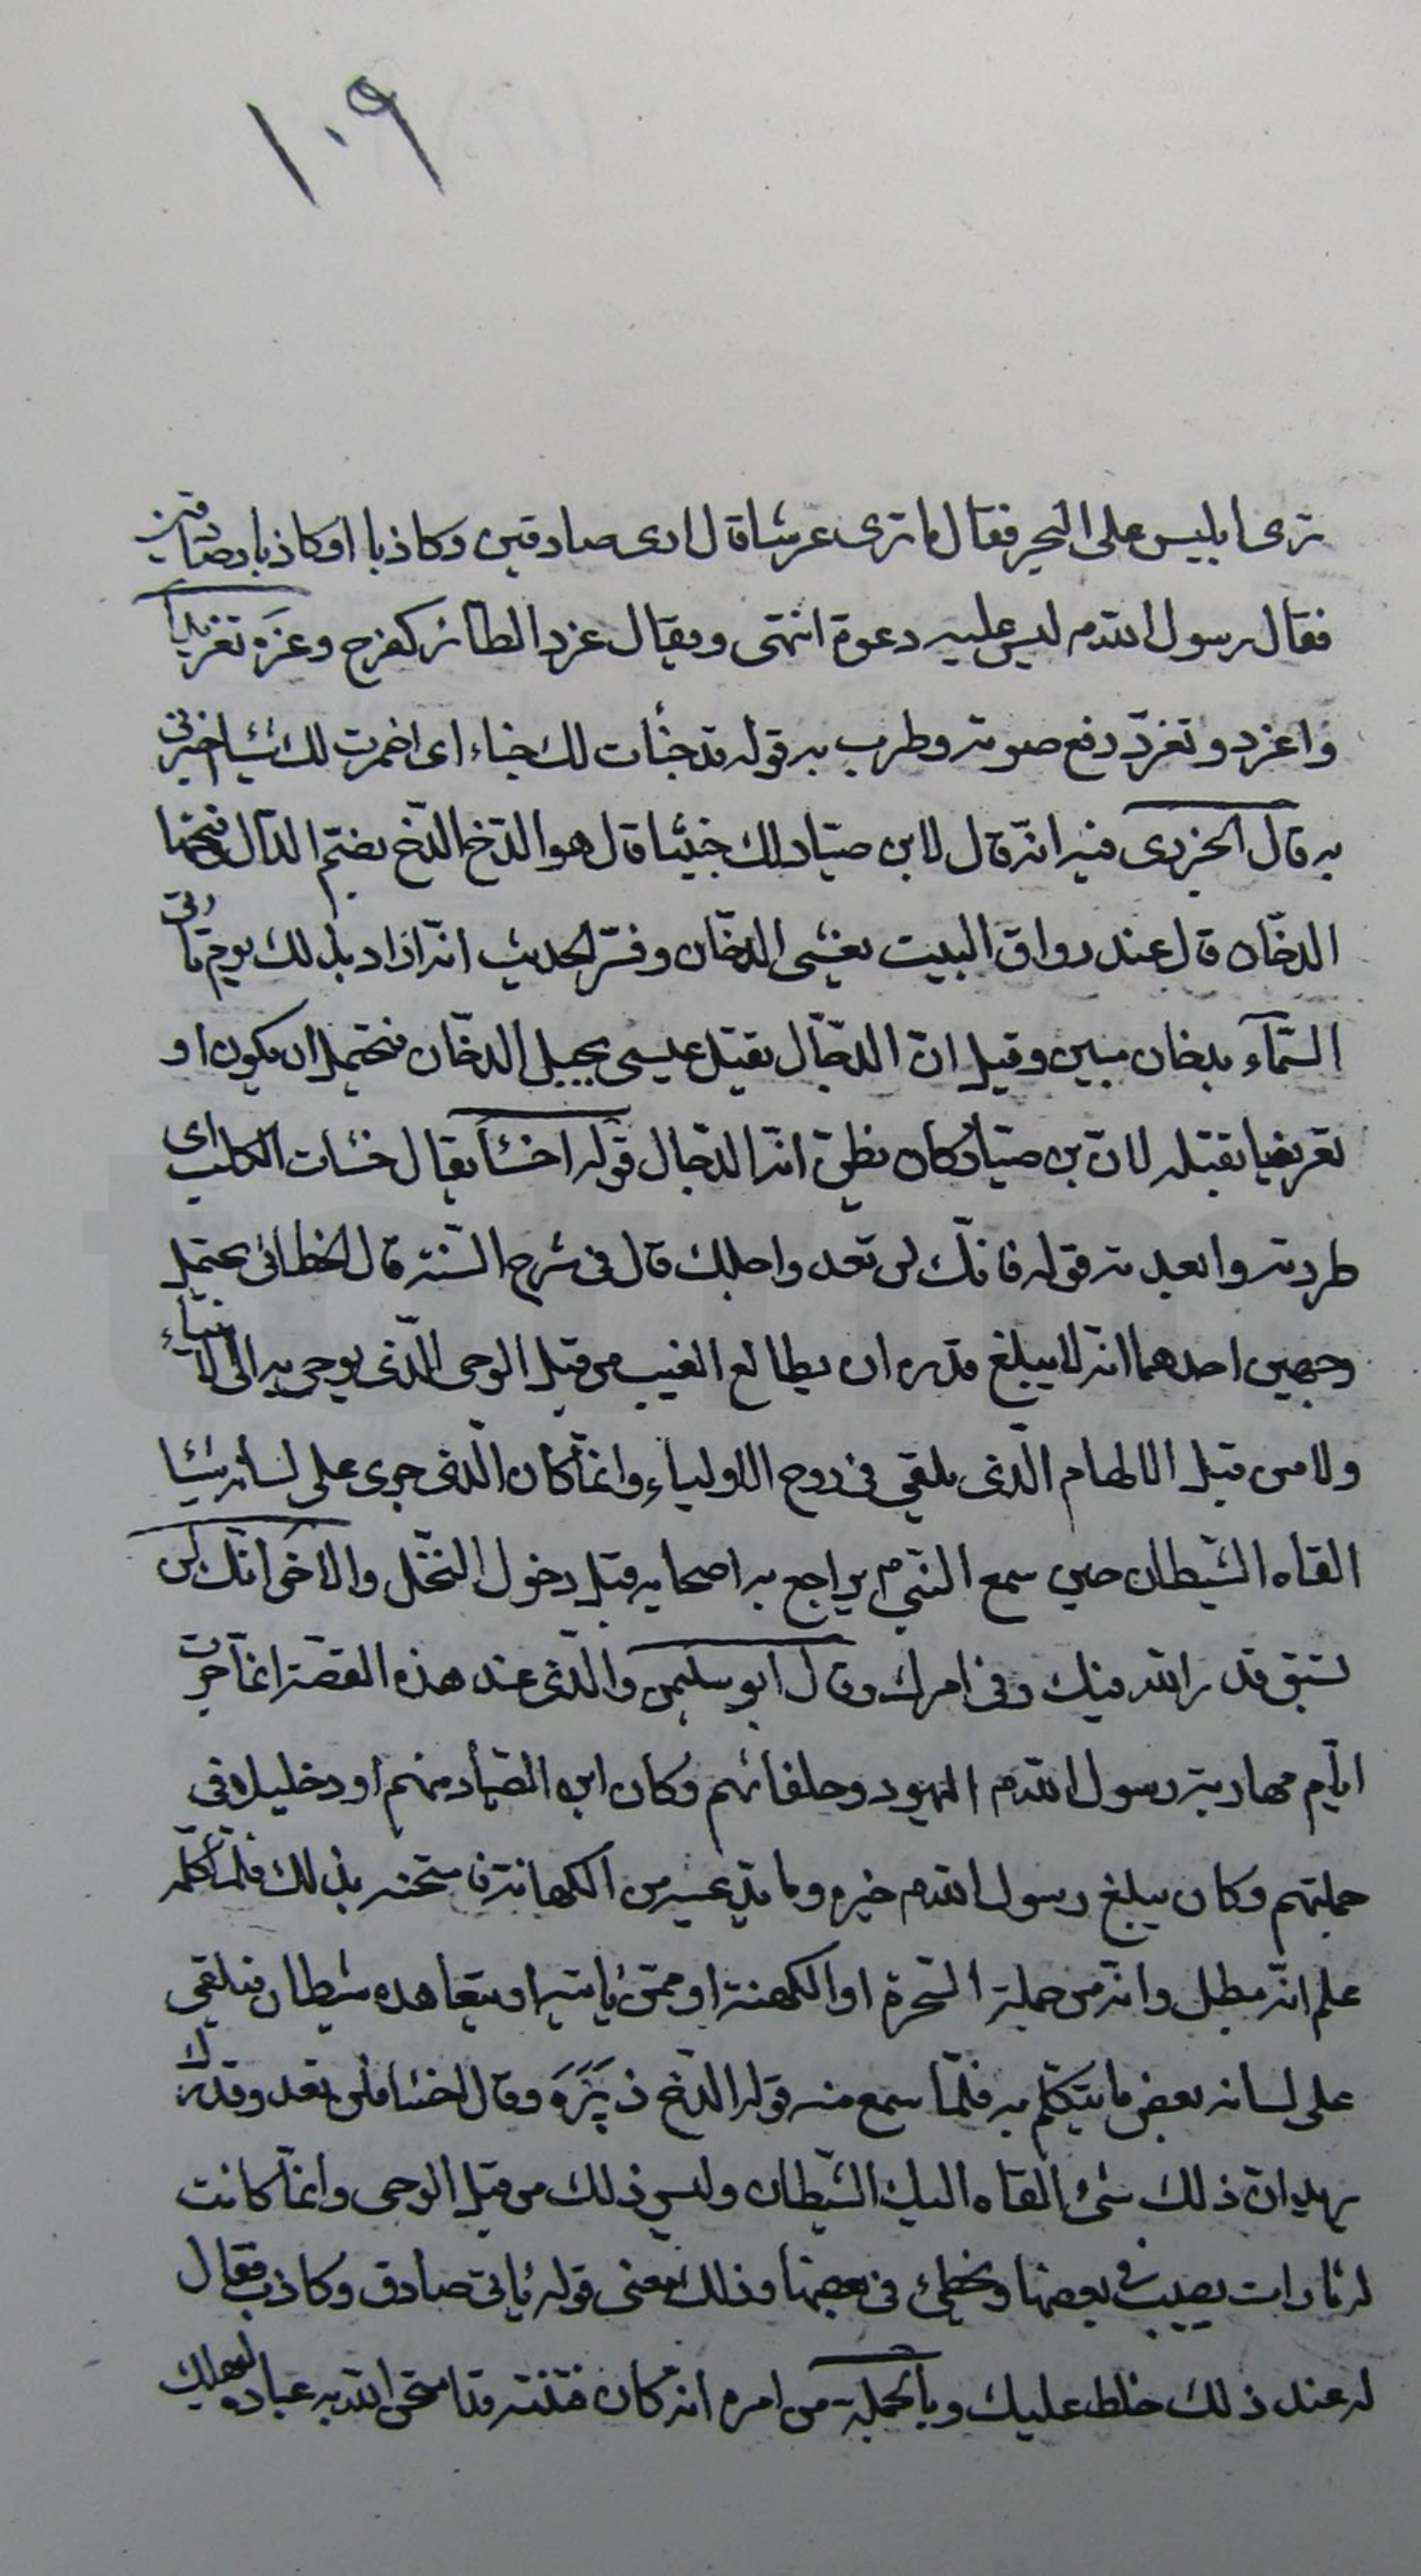 ١٠٩
ترى ابليس على البحر فقال ما ترى عرشا قال ارى صادقين وكاذبا او كاذبا وصادقين
فقال رسول الله م لبس عليه دعوة انتهى ويقال غرد الطائر كفرح وغرّد تغريدا
واغرد وتغرّد رفع صوته وطرب به قوله قد خبأت لك خباء اى اضمرت لك شيئا اخبرنى
به قال الجزرى فيه انّه قال لابن صيّاد لك خبيئا قال هو الدّخ الدّخ بضمّ الدّال وفتحها
الدخّان قال عند رواق البيت يغشى الدخّان وفسّر الحديث انّه اراد بذلك يوم تأتى
السّمآء بدخان مبين وقيل انّ الدجّال يقتله عيسى بجبل الدخّان فيحتمل ان يكون ارا
تعريضا بقتله لانّ بن صيّاد كان يظنّ انّه الدجال قوله اخسأ يقال خسات الكلب اى
طردته وابعدته قوله فانّك لن تعد واجلك قال فى شرح السّنة قال الخطابى يحتمل
وجهين احدهما انّه لا يبلغ قدره ان يطالع الغيب من قبل الوحى الّذى يوحى به الى الانبياء
ولا من قبل الالهام الّذى يلقى فى روح الاولياء وانّما كان الّذى جرى على لسانه شيئا
القاه الشّيطان حين سمع النّبى م يراجع به اصحابه قبل دخول النّخل والاخر انّك لن
تسبق قدر الله فيك وفى امرك وقال ابو سليمن والّذى عند هذه القصّة انّما جرت
ايّام مهادنة رسول الله م اليهود وحلفائهم وكان ابن الصّيّاد منهم او دخيلا فى
جملتهم وكان يبلغ رسول الله م خبره وما يدّعيه من الكهانة فامتحنه بذلك فلمّا كلّمه
علم انّه مبطل وانّه من جملة السّحرة او الكهنة او ممّن ياتيه او يتعاهده شيطان فيلقى
على لسانه بعض ما يتكلّم به فلمّا سمع منه قوله الدّخ زبره وقال اخسأ فلن تعد وقدرك
يريد انّ ذلك شىء القاه اليك الشّيطان وليس ذلك من قبل الوحى وانّما كانت
له تارات يصيب فى بعضها ويخطئ فى بعضها وذلك معنى قوله يأتى صادق وكاذب فقال
له عند ذلك خلط عليك وبالجملة من امره انّه كان فتنة قد امتحن الله به عباده ليهلك